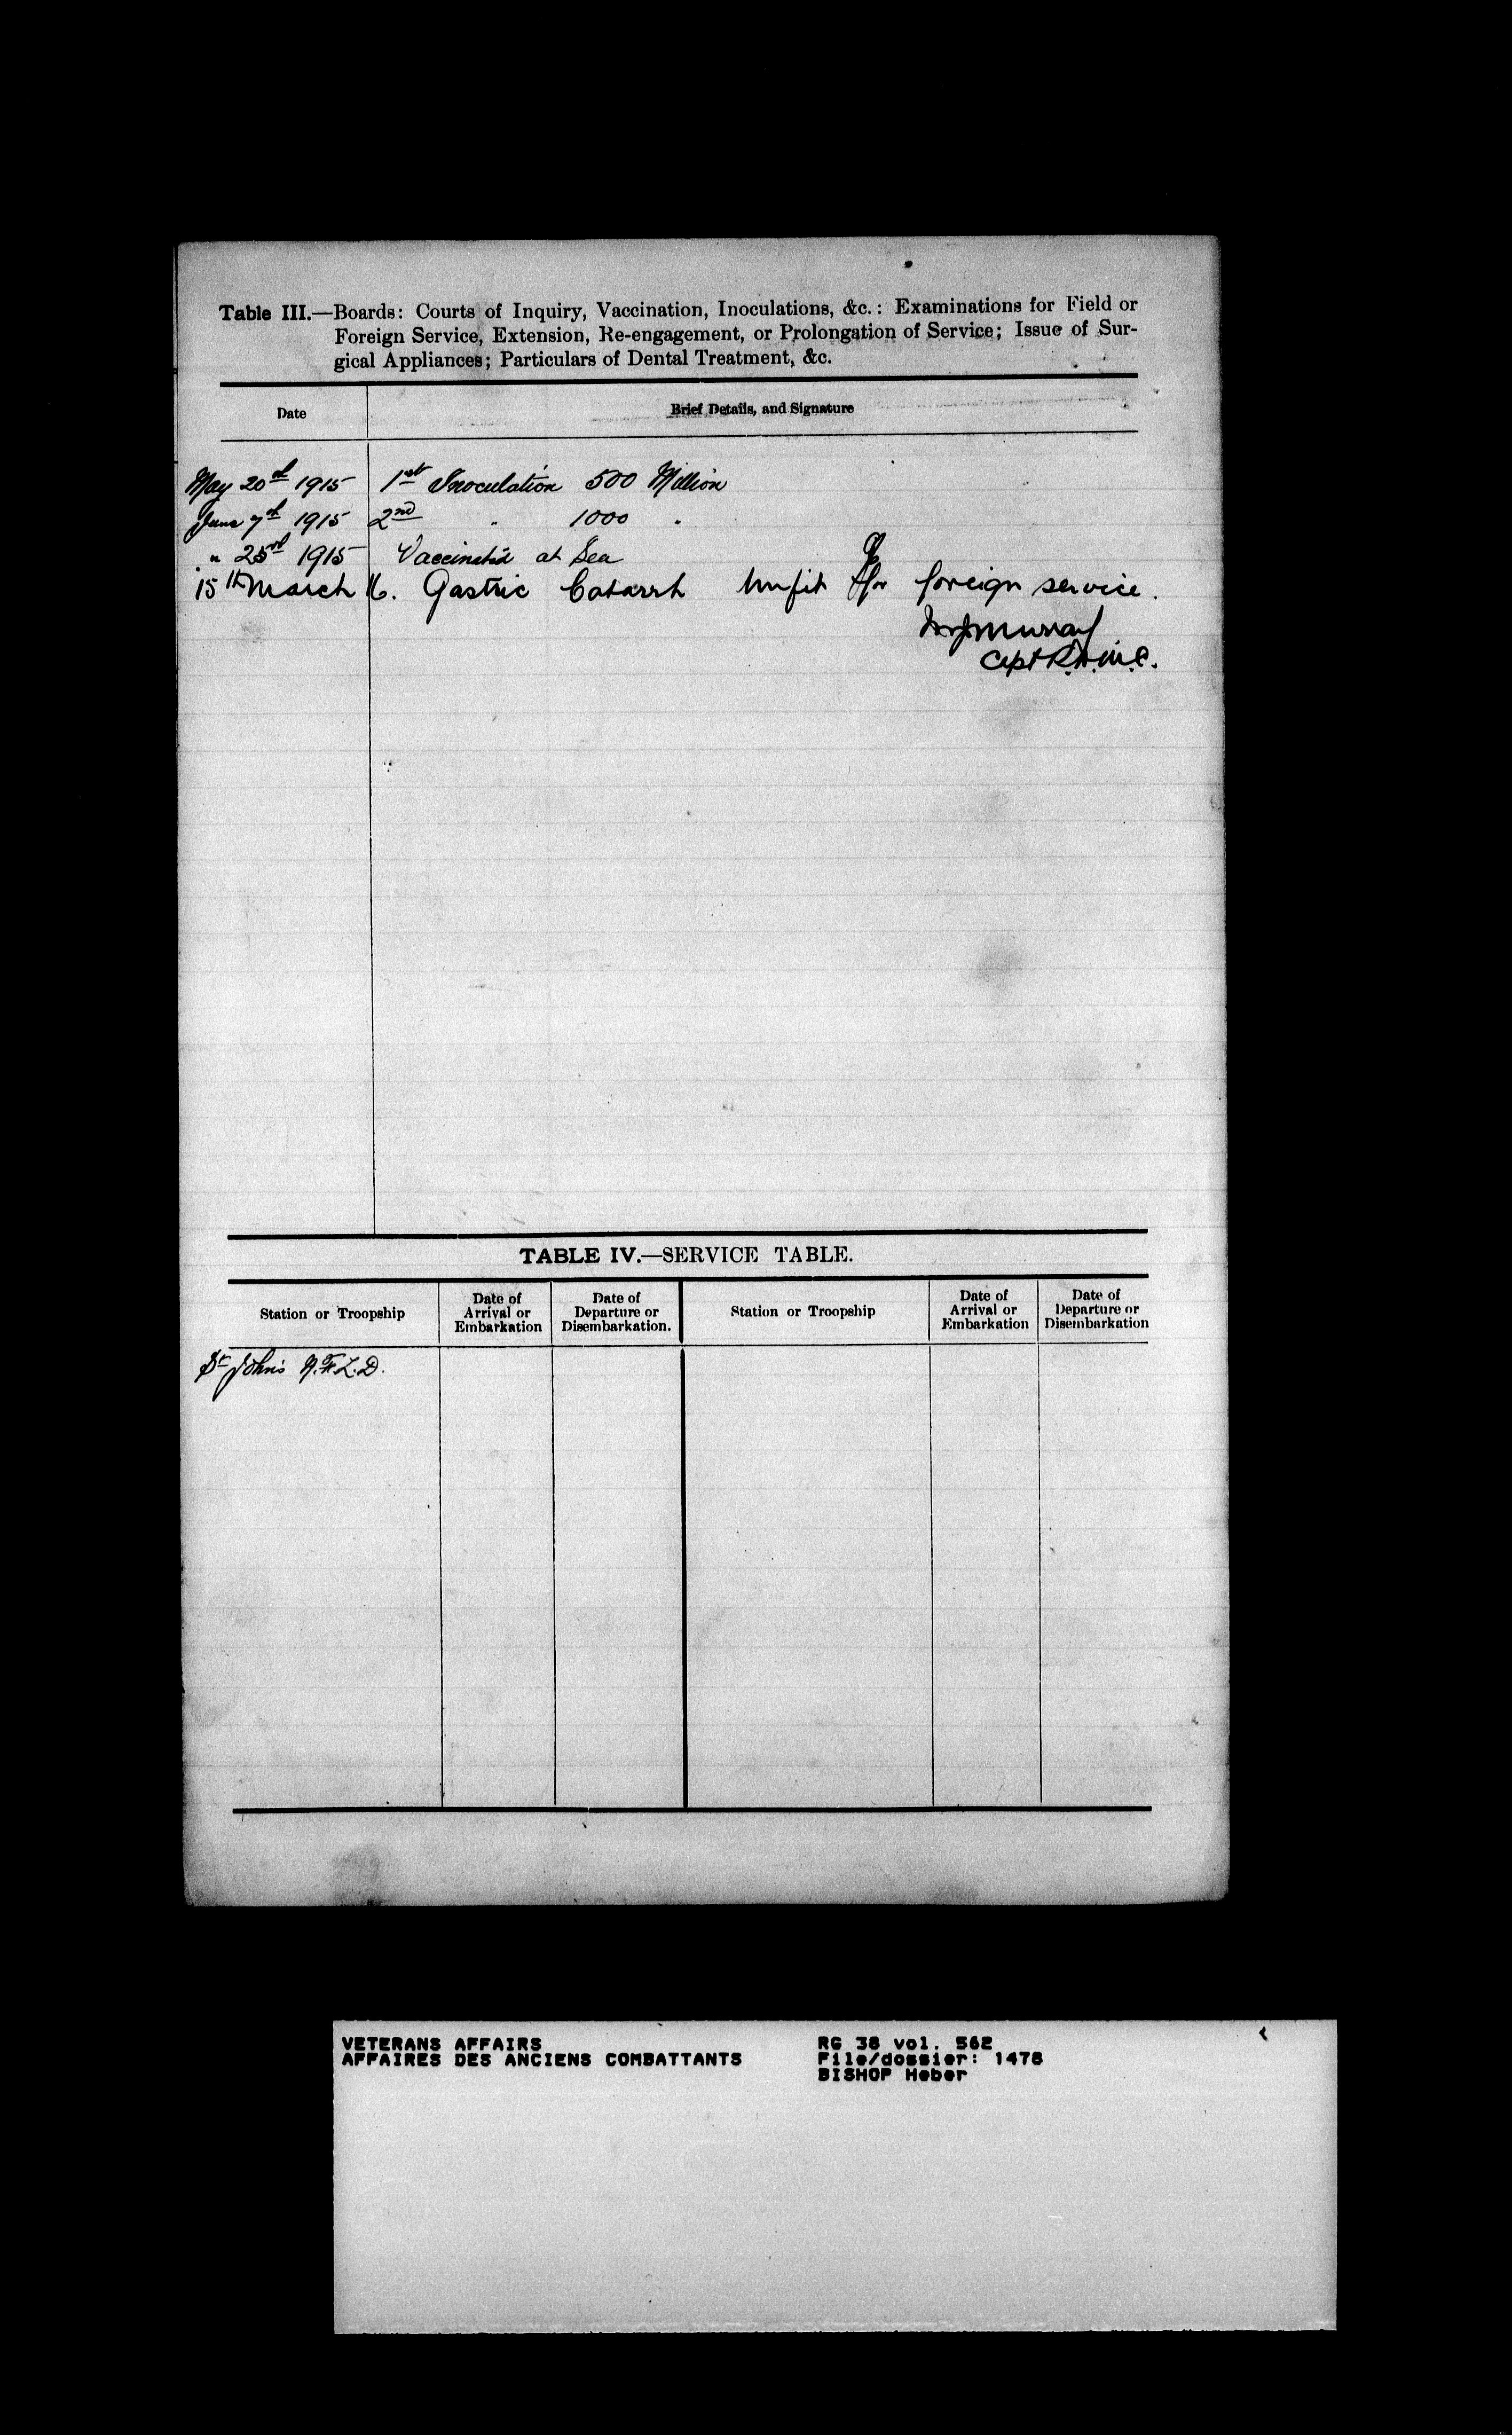 Table III.—Boards: Courts of Inquiry, Vaccination, Inoculations, &c.: Examinations for Field or
Foreign Service, Extension, Re-engagement, or Prolongation of Service; Issue of Sur-
gical Appliances; Particulars of Dental Treatment, &c.
Date Brief Details, and Signature
May 20th 1915 1st Inoculation 500 Million
June 7th 1915 2nd " 1000 "
" 25th 1915 Vaccinated at Sea
15th March 16. Gastric Catarrh Unfit for foreign service.
Murray
Capt R.A.M.C.
TABLE IV.—SERVICE TABLE.
Station or Troopship Date of Arrival or Embarkation Date of Departure or Disembarkation. Station or Troopship Date of Arrival or Embarkation Date of Departure or Disembarkation
St John's N.F.L.D.
VETERANS AFFAIRS RG 38 vol. 562
AFFAIRES DES ANCIENS COMBATTANTS File/dossier: 1478
BISHOP Heber